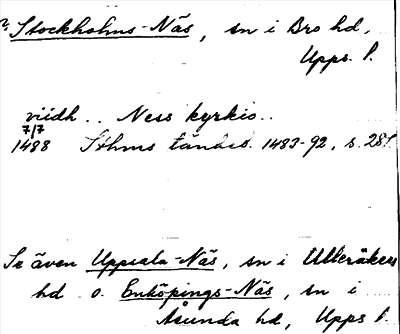 ? Stockholms-Näs, sn i Bro hd,
Upps. l.
viidh .. Ness kyrkio..
7/7
1488 Sthms tändeb. 1483-92, s. 281.
Se även Uppsala-Näs, sn i Ulleråkers
hd o. Enköpings-Näs, sn i
Åsunda hd, Upps l.